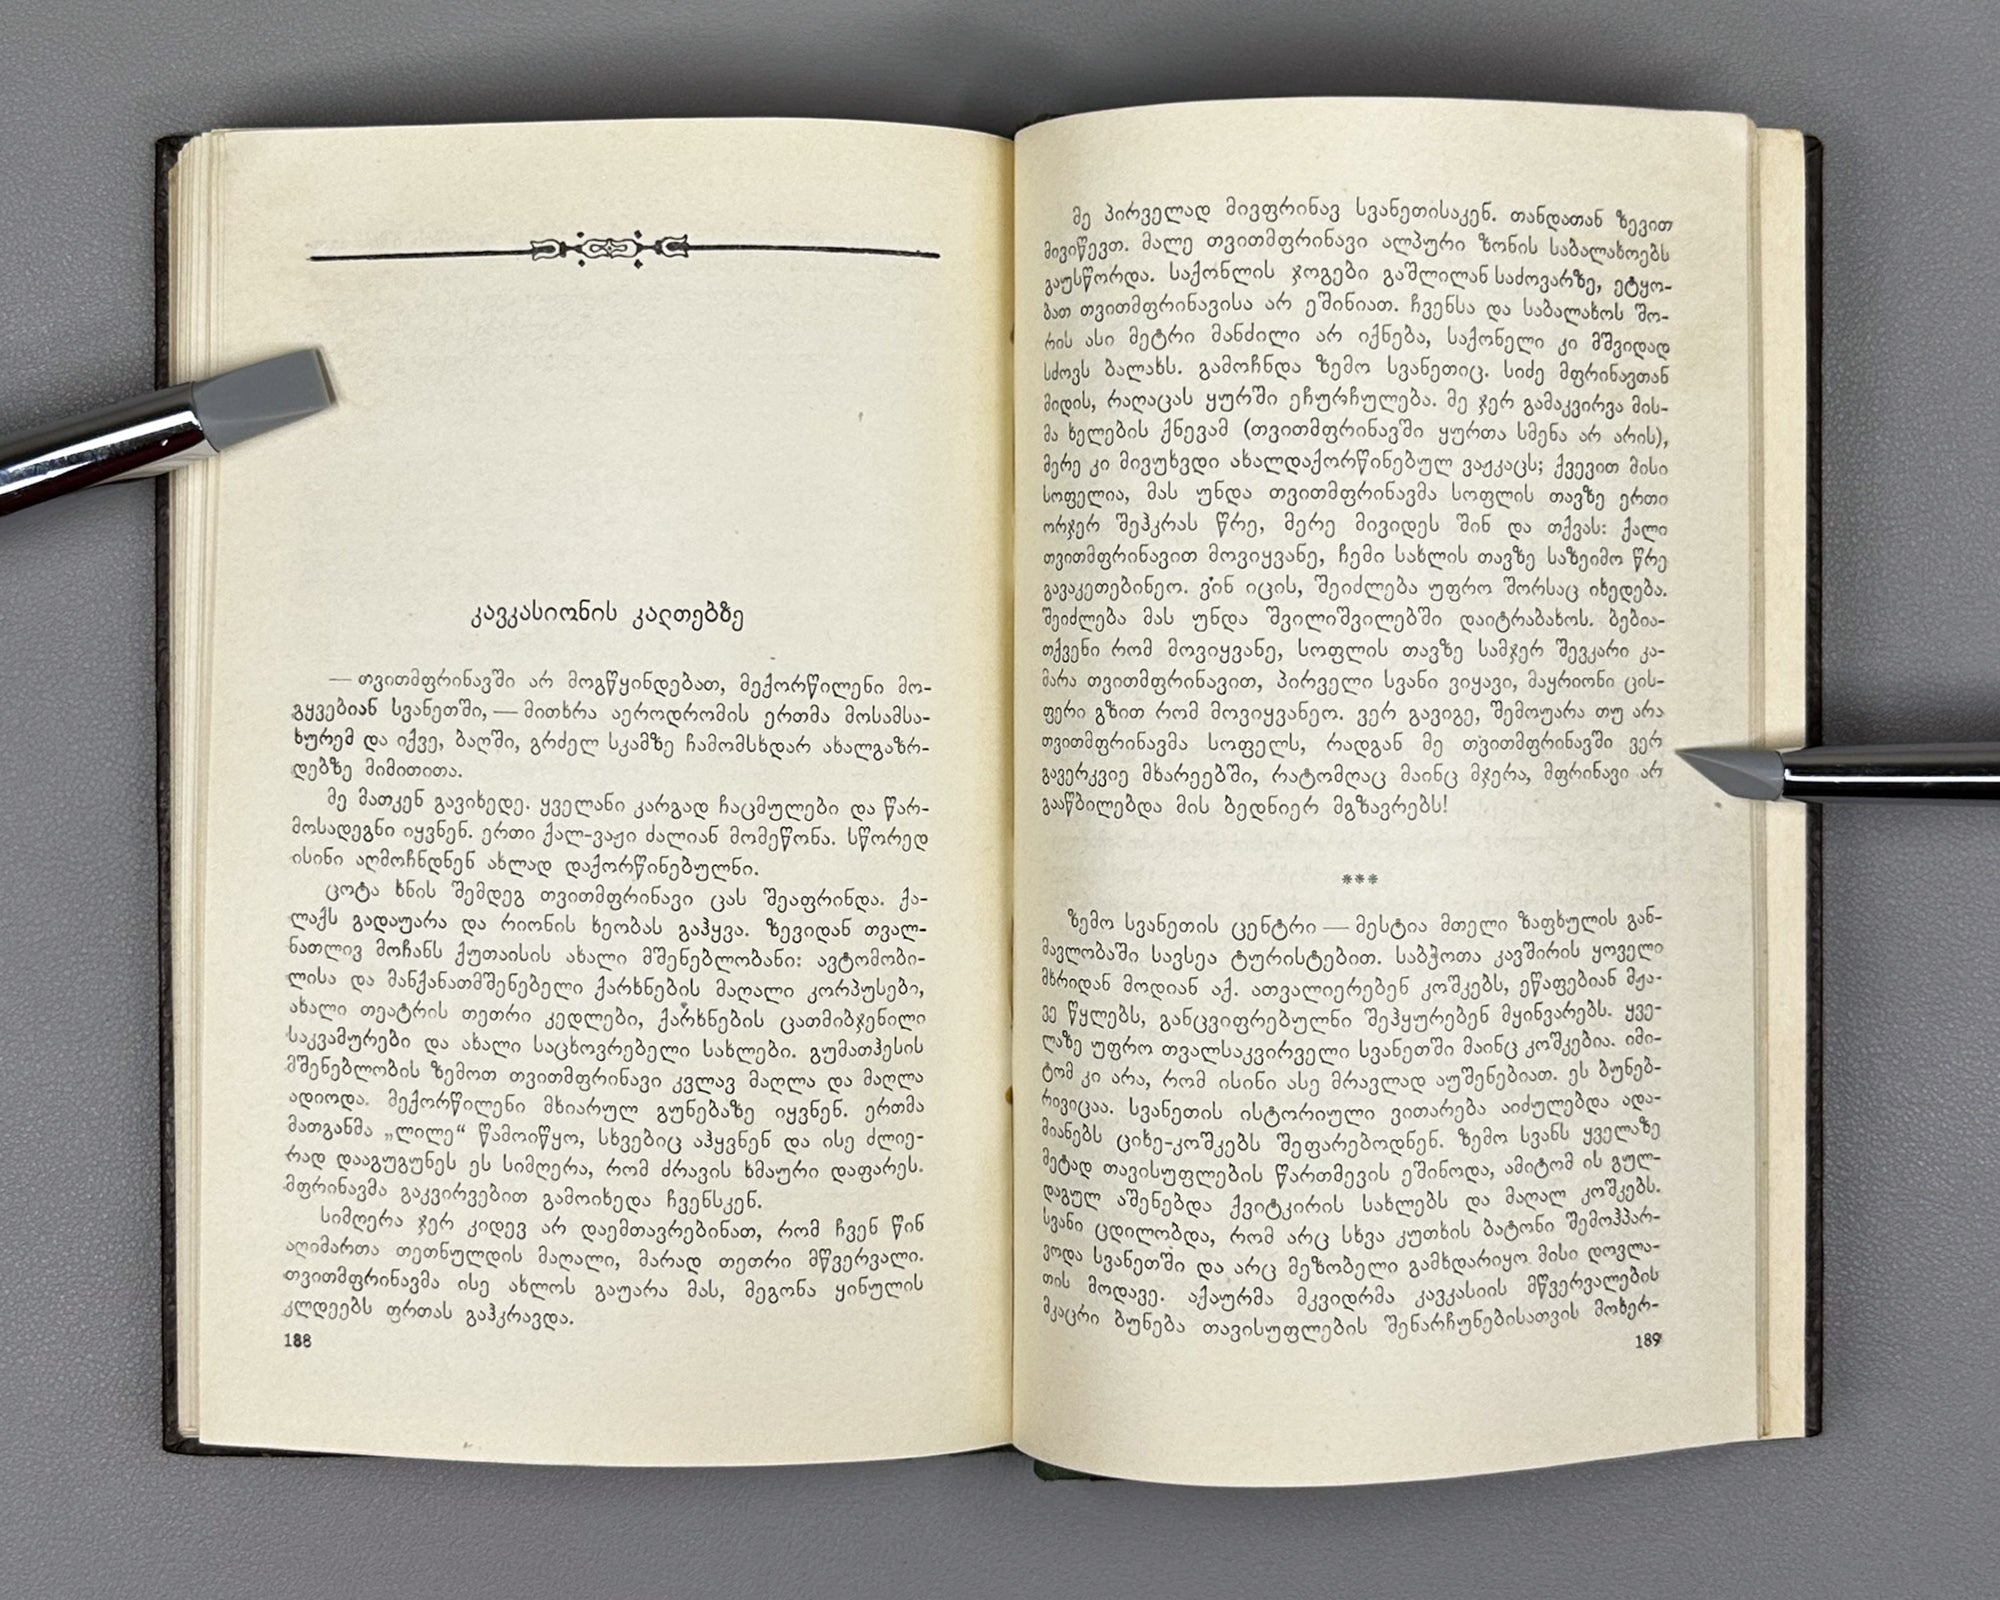 კავკასიონის კალთებზე
— თვითმფრინავში არ მოგწყინდებათ, მექორწილენი მო-
გყვებიან სვანეთში, — მითხრა აეროდრომის ერთმა მოსამსა-
ხურემ და იქვე, ბაღში, გრძელ სკამზე ჩამომსხდარ ახალგაზრ-
დებზე მიმითითა.
მე მათკენ გავიხედე. ყველანი კარგად ჩაცმულები და წარ-
მოსადეგნი იყვნენ. ერთი ქალ-ვაჟი ძალიან მომეწონა. სწორედ
ისინი აღმოჩნდნენ ახლად დაქორწინებულნი.
ცოტა ხნის შემდეგ თვითმფრინავი ცას შეაფრინდა. ქა-
ლაქს გადაუარა და რიონის ხეობას გაჰყვა. ზევიდან თვალ-
ნათლივ მოჩანს ქუთაისის ახალი მშენებლობანი: ავტომობი-
ლისა და მანქანათმშენებელი ქარხნების მაღალი კორპუსები,
ახალი თეატრის თეთრი კედლები, ქარხნების ცათმიბჯენილი
საკვამურები და ახალი საცხოვრებელი სახლები. გუმათჰესის
მშენებლობის ზემოთ თვითმფრინავი კვლავ მაღლა და მაღლა
ადიოდა. მექორწილენი მხიარულ გუნებაზე იყვნენ. ერთმა
მათგანმა „ლილე“ წამოიწყო, სხვებიც აჰყვნენ და ისე ძლიე-
რად დააგუგუნეს ეს სიმღერა, რომ ძრავის ხმაური დაფარეს.
მფრინავმა გაკვირვებით გამოიხედა ჩვენსკენ.
სიმღერა ჯერ კიდევ არ დაემთავრებინათ, რომ ჩვენ წინ
აღიმართა თეთნულდის მაღალი, მარად თეთრი მწვერვალი.
თვითმფრინავმა ისე ახლოს გაუარა მას, მეგონა ყინულის
კლდეებს ფრთას გაჰკრავდა.
188
მე პირველად მივფრინავ სვანეთისაკენ. თანდათან ზევით
მივიწევთ. მალე თვითმფრინავი ალპური ზონის საბალახოებს
გაუსწორდა. საქონლის ჯოგები გაშლილან საძოვარზე, ეტყო-
ბათ თვითმფრინავისა არ ეშინიათ. ჩვენსა და საბალახოს შო-
რის ასი მეტრი მანძილი არ იქნება, საქონელი კი მშვიდად
სძოვს ბალახს. გამოჩნდა ზემო სვანეთიც. სიძე მფრინავთან
მიდის, რაღაცას ყურში ეჩურჩულება. მე ჯერ გამაკვირვა მის-
მა ხელების ქნევამ (თვითმფრინავში ყურთა სმენა არ არის),
მერე კი მივუხვდი ახალდაქორწინებულ ვაჟკაცს; ქვევით მისი
სოფელია, მას უნდა თვითმფრინავმა სოფლის თავზე ერთი
ორჯერ შეჰკრას წრე, მერე მივიდეს შინ და თქვას: ქალი
თვითმფრინავით მოვიყვანე, ჩემი სახლის თავზე საზეიმო წრე
გავაკეთებინეო. ვინ იცის, შეიძლება უფრო შორსაც იხედება.
შეიძლება მას უნდა შვილიშვილებში დაიტრაბახოს. ბებია-
თქვენი რომ მოვიყვანე, სოფლის თავზე სამჯერ შევკარი კა-
მარა თვითმფრინავით, პირველი სვანი ვიყავი, მაყრიონი ცის-
ფერი გზით რომ მოვიყვანეო. ვერ გავიგე, შემოუარა თუ არა
თვითმფრინავმა სოფელს, რადგან მე თვითმფრინავში ვერ
გავერკვიე მხარეებში, რატომღაც მაინც მჯერა, მფრინავი არ
გააწბილებდა მის ბედნიერ მგზავრებს!
***
ზემო სვანეთის ცენტრი — მესტია მთელი ზაფხულის გან-
მავლობაში სავსეა ტურისტებით. საბჭოთა კავშირის ყოველი
მხრიდან მოდიან აქ. ათვალიერებენ კოშკებს, ეწაფებიან მჟა-
ვე წყლებს, განცვიფრებულნი შეჰყურებენ მყინვარებს. ყვე-
ლაზე უფრო თვალსაკვირველი სვანეთში მაინც კოშკებია. იმი-
ტომ კი არა, რომ ისინი ასე მრავლად აუშენებიათ. ეს ბუნებ-
რივიცაა. სვანეთის ისტორიული ვითარება აიძულებდა ადა-
მიანებს ციხე-კოშკებს შეფარებოდნენ. ზემო სვანს ყველაზე
მეტად თავისუფლების წართმევის ეშინოდა, ამიტომ ის გულ-
დაგულ აშენებდა ქვიტკირის სახლებს და მაღალ კოშკებს.
სვანი ცდილობდა, რომ არც სხვა კუთხის ბატონი შემოჰპარ-
ვოდა სვანეთში და არც მეზობელი გამხდარიყო მისი დოვლა-
თის მოდავე. აქაურმა მკვიდრმა კავკასიის მწვერვალების
მკაცრი ბუნება თავისუფლების შენარჩუნებისათვის მოხერ-
189